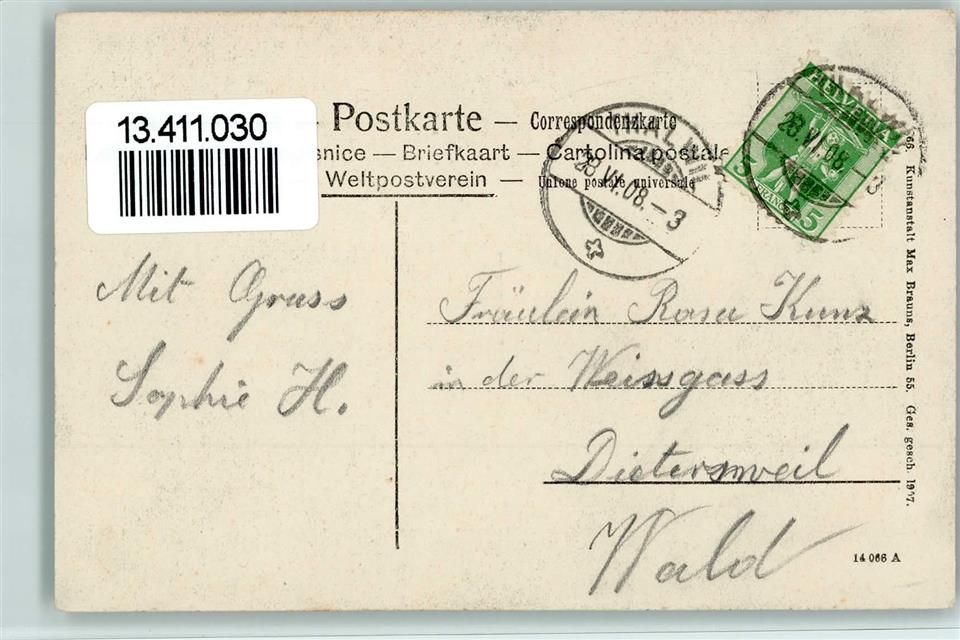 13.411.030
— Postkarte — Correspondenzkarte
— Briefkaart — Cartolina postale
Weltpostverein — Unione postale universale
28.VI.08.–3
HELVETIA
5 FRANCO 5
28.VI.08
Mit Gruss
Sophie H.
Fräulein Rosa Kunz
in der Weissgass
Dietersweil
Wald
Kunstanstalt Max Brauns, Berlin 55. Ges. gesch. 1907.
14 066 A